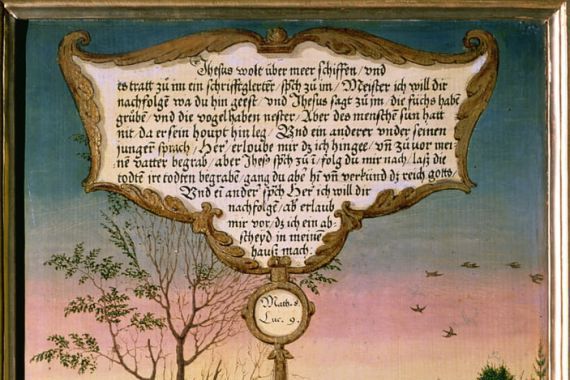 Jhesus wolt über meer schiffen / vnd
es tratt zů im ein schrifftglerter sp̄ch zů im / Meister ich will dir
nachfolgē wa du hin geest / vnd Jhesus sagt zů jm / die füchs habē
grůbē / vnd die vogel haben nester / Aber des menschē sun hatt
nit da er sein houpt hin leg / Vnd ein anderer vnder seinen
jungern sprach / Her erloube mir dz ich hingee / vn̄ zů vor mei-
nē vatter begrab / aber Jhes9 sp̄ch zů ī / folg du mir nach / laß die
todtē jre todten begrabē / gang du abē hī vn̄ verkünd dz reich gotts /
Vnd ei ander sp̄ch Her ich will dir
nachfolgē / ab erlaub
mir vor / dz ich ein ab-
scheyd in meinē
hauß mach.
Math. 8.
Luc. 9.